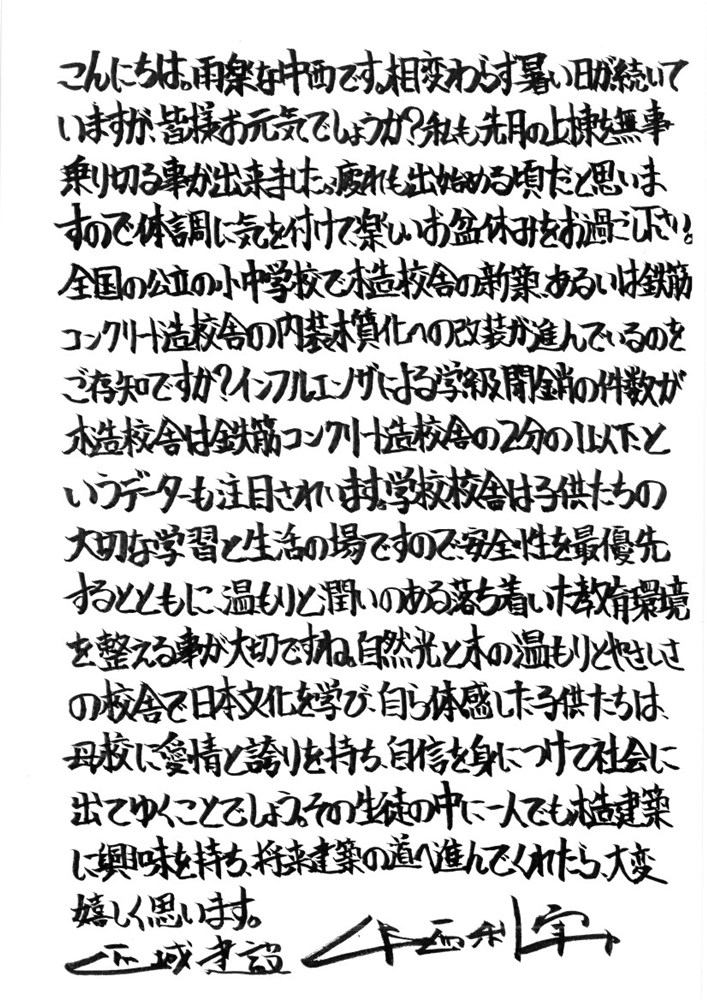 こんにちは。雨楽な中西です。相変わらず暑い日が続いて
いますが、皆様お元気でしょうか?私も先月の上棟を無事
乗り切る事が出来ました。疲れも出始める頃だと思いま
すので体調に気を付けて、楽しいお盆休みをお過ごし下さい。
全国の公立の小中学校で木造校舎の新築、あるいは鉄筋
コンクリート造校舎の内装木質化への改装が進んでいるのを
ご存知ですか?インフルエンザによる学級閉鎖の件数が
木造校舎は鉄筋コンクリート造校舎の2分の1以下と
いうデーターも注目されています。学校校舎は子供たちの
大切な学習と生活の場ですので、安全性を最優先
するとともに、温もりと潤いのある落ち着いた教育環境
を整える事が大切ですね。自然光と木の温もりとやさしさ
の校舎で日本文化を学び、自ら体感した子供たちは、
母校に愛情と誇りを持ち、自信を身につけて社会に
出てゆくことでしょう。その生徒の中に一人でも木造建築
に興味を持ち、将来建築の道へ進んでくれたら、大変
嬉しく思います。
建設 中西利